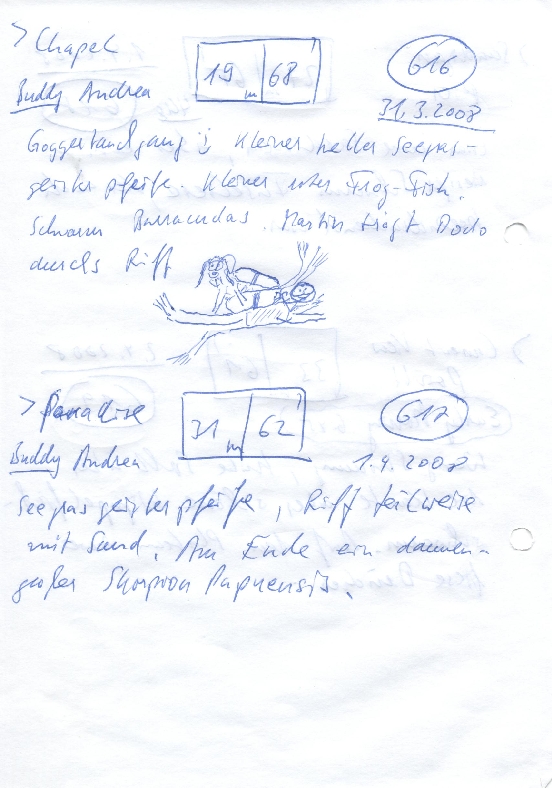 > Chapel
19 m | 68'
616
Buddy Andrea
31.3.2008
kleiner heller Seegras-
geisterpfeife. Kleiner roter Frog-Fish.
Schwarm Barracudas. Martin trägt Dodo
durchs Riff
> Paradise
31 m | 62'
617
Buddy Andrea
1.4.2008
Seegrasgeisterpfeife, Riff teilweise
mit Sand. Am Ende ein daumen-
großer Skorpion Papuensis.